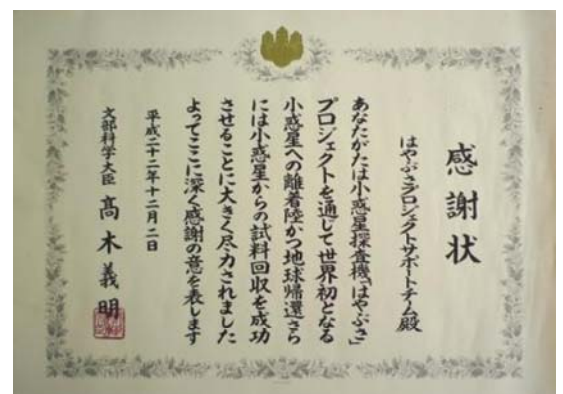 感謝状
はやぶさプロジェクトサポートチーム殿
あなたがたは小惑星探査機「はやぶさ」
プロジェクトを通じて世界初となる
小惑星への離着陸かつ地球帰還さら
には小惑星からの試料回収を成功
させることに大きく尽力されました
よってここに深く感謝の意を表します
平成二十二年十二月二日
文部科学大臣 髙木義明